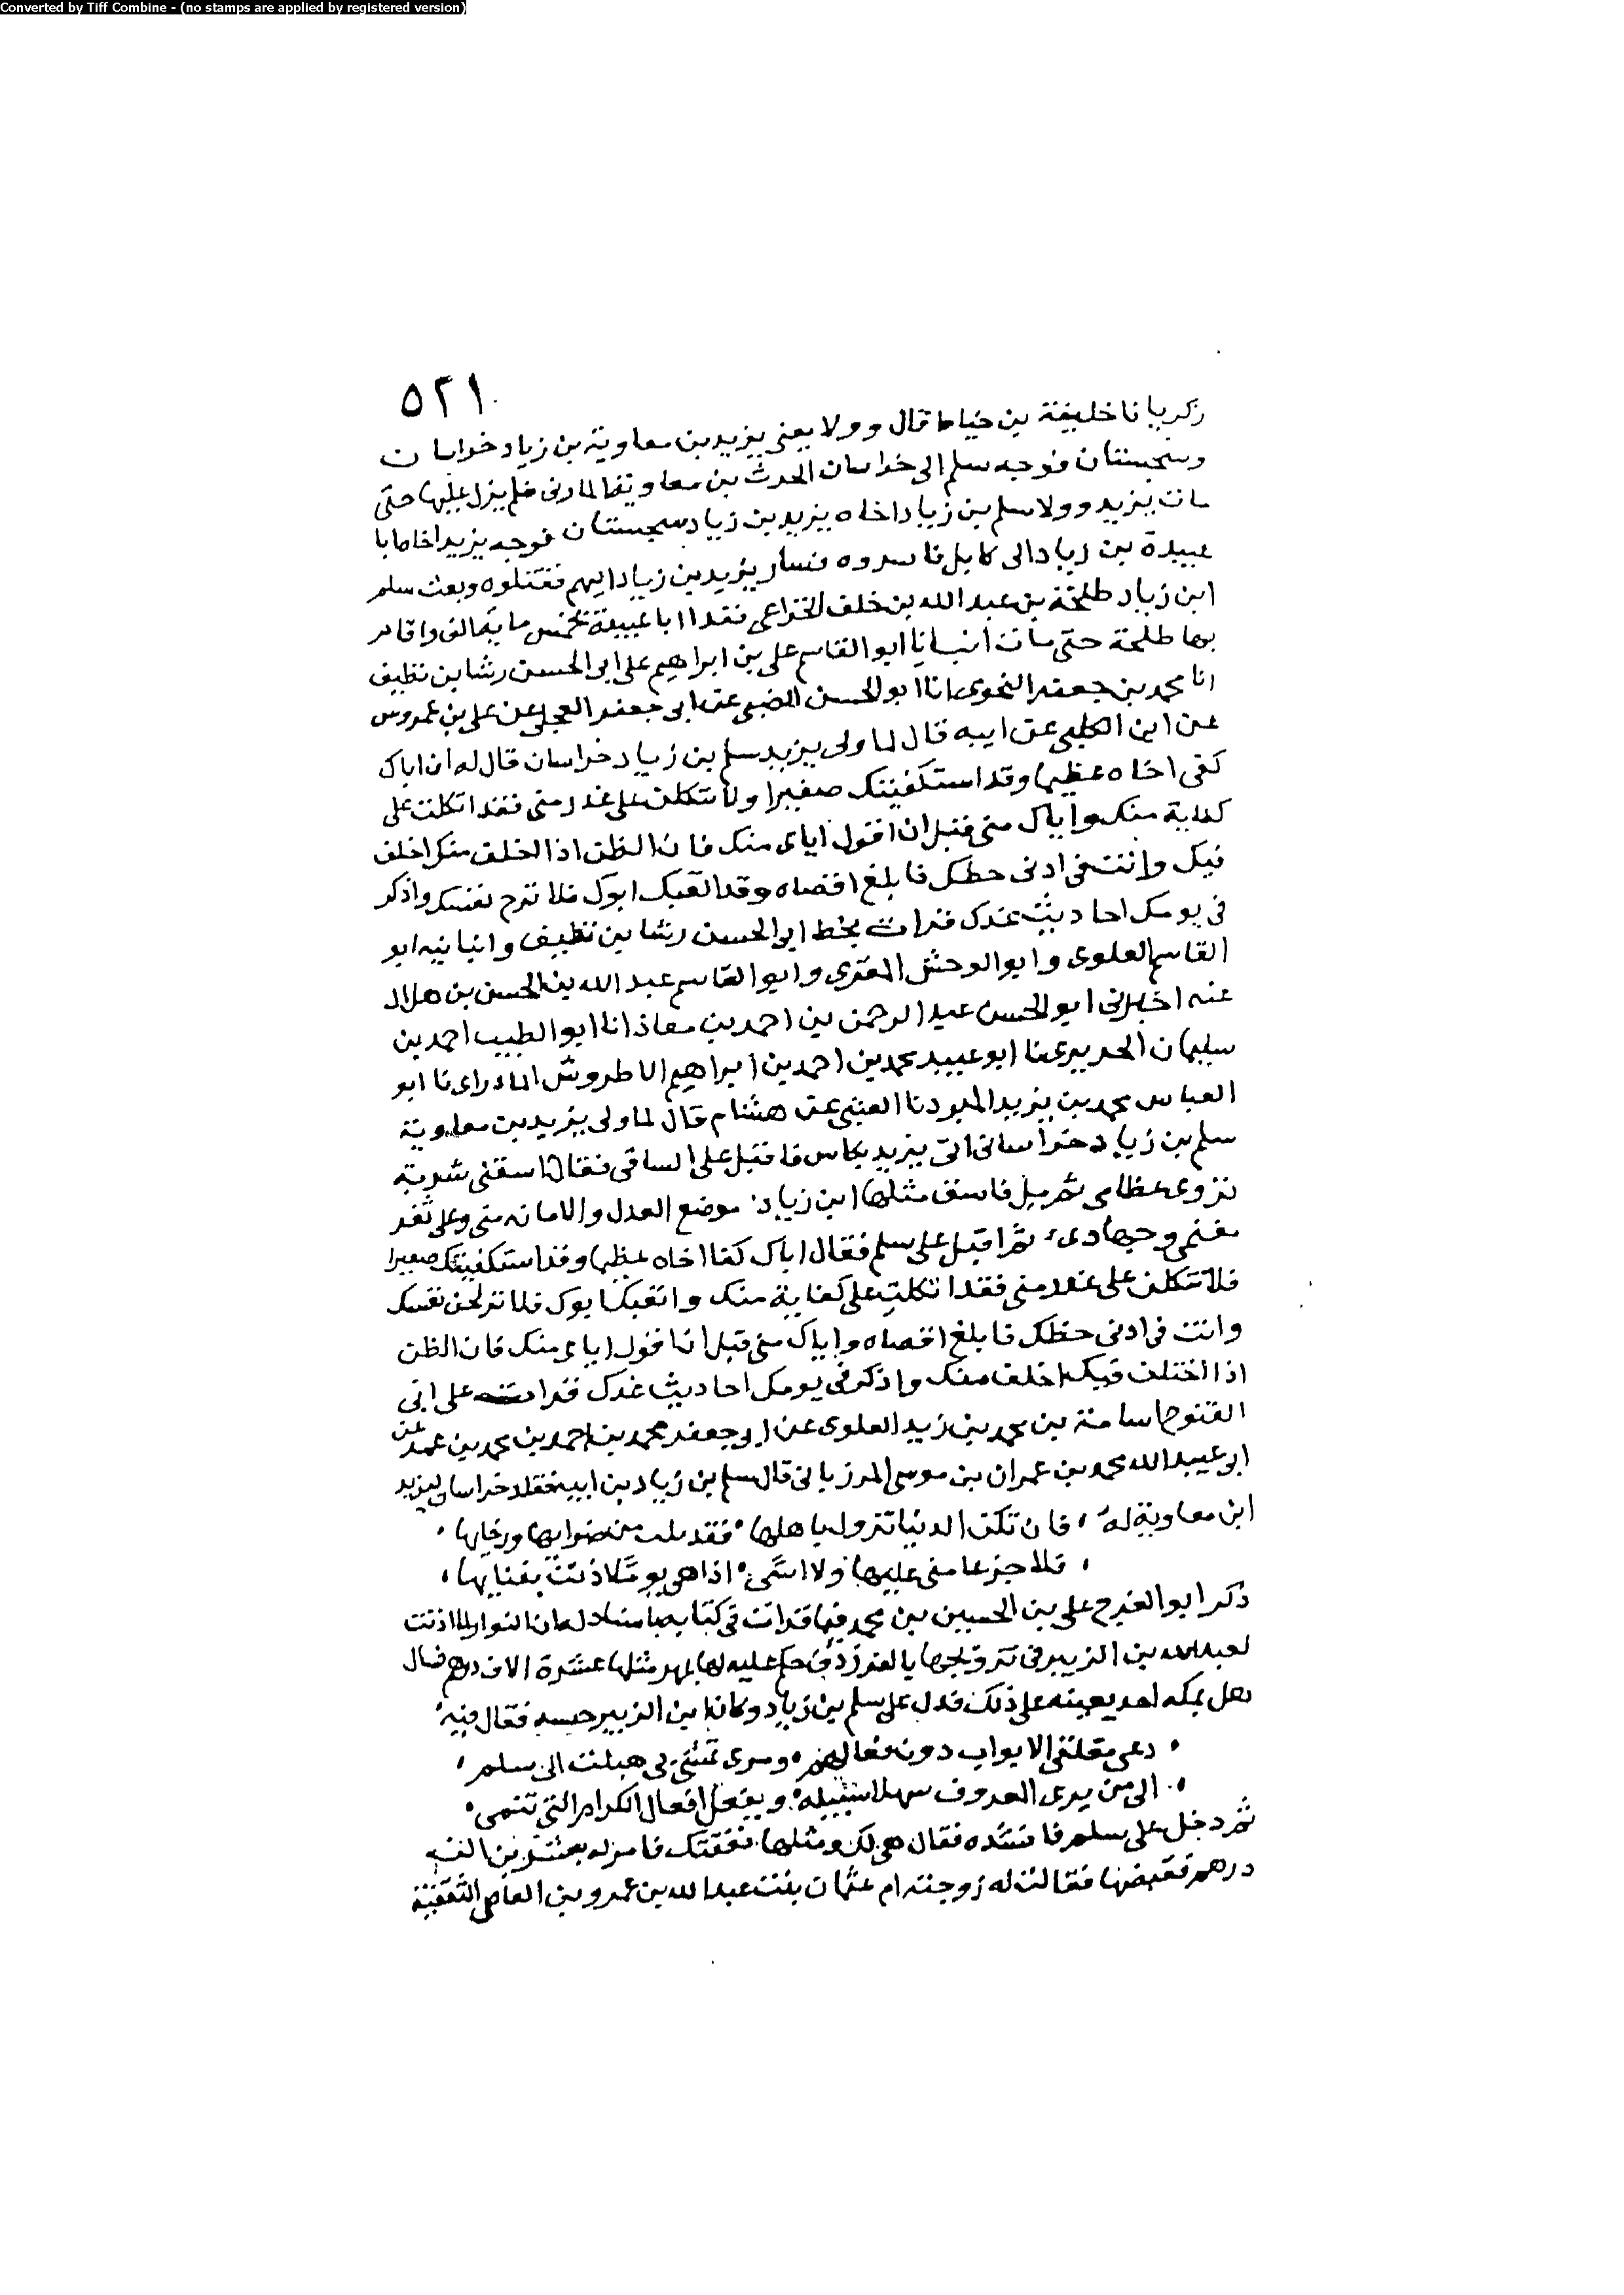 Converted by Tiff Combine - (no stamps are applied by registered version)
٥٢١
زكريا نا خليفة بن خياط قال وولا يعنى يزيد بن معاوية بن زياد خراسان
وسجستان فوجه سلم الى خراسان الحرث بن معاوية المارنى فلم يزل عليها حتى
مات يزيد وولا سلم بن زياد اخاه يزيد بن زياد سجستان فوجه يزيد اخاه ابا
عبيدة بن زياد الى كابل فاسروه فسار يزيد بن زياد اليهم فقتلوه وبعث سلم
ابن زياد طلحة بن عبد الله بن خلف الخزاعى ففدا ابا عبيدة بخمس مايه الف واقام
بها طلحة حتى مات انبانا ابو القاسم على بن ابراهيم على ابى الحسن رشا بن نظيف
انا محمد بن جعفر النحوى انا ابو الحسن الضبى عن ابى جعفر العجلى عن على بن عمروس
عن ابن الكلبى عن ابيه قال لما ولى يزيد سلم بن زياد خراسان قال له ان اباك
كفى اخاه عظيما وقد استكفيتك صغيرا ولا تتكلن على عذر منى فقد اتكلت على
كفاية منك واياك منى قبل ان اقول اياى منك فان الظن اذا اخلف منك اخلف
فيك وانت فى ادنى حظك فابلغ اقصاه وقد اتعبك ابوك فلا ترح نفسك واذكر
فى يومك احاديث غدك قرات بخط ابى الحسن رشا بن نظيف وانبانيه ابو
القاسم العلوى وابو الوحش المقرى وابو القاسم عبد الله بن الحسن بن هلال
عنه اخبرنى ابو الحسن عبد الرحمن بن احمد بن معاذ انا ابو الطيب احمد بن
سليمان الحريرى نا ابو عبيد محمد بن احمد بن ابراهيم الاطروش الماذراى نا ابو
العباس محمد بن يزيد المبرد نا العتبى عن هشام قال لما ولى يزيد بن معاوية
سلم بن زياد خراسان اتى يزيد بكاس فاقبل على الساقى فقال اسقنى شربة
تروى عظامى ثم مل فاسق مثلها ابن زياد موضع العدل والامانه منى وعلى ثغر
مغنمى وجهادى ثم اقبل على سلم فقال اباك كفا اخاه عظيما وقد استكفيتك صغيرا
فلا تتكلن على عذر منى فقد اتكلت على كفاية منك واتعبك ابوك فلا ترحن نفسك
وانت فى ادنى حظك فابلغ اقصاه واياك منى قبل ان اقول اياى منك فان الظن
اذا اختلف فيك اخلف منك واذكر فى يومك احاديث غدك قرات على ابى
الفتوح اسامة بن محمد بن زيد العلوى عن ابى جعفر محمد بن احمد بن محمد بن عمر عن
ابى عبيد الله محمد بن عمران بن موسى المرزبانى قال سلم بن زياد بن ابيه تقلد خراسان ليزيد
ابن معاوية له ، فان تكن الدنيا تزول باهلها ، فقد نلت من ضرايها ورخايها ،
، فلا جزعا منى عليها ولا اسى ، اذا هى يوما اذنت بفنايها ،
ذكر ابو الفرج على بن الحسين بن محمد فيما قرات فى كتابه باسناد له ان النوار لما اذنت
لعبد الله بن الزبير فى تزويجها بالفرزدق حكم عليه لها بمهر مثلها عشرة الاف درهم فسال
هل بمكه احد يعينه على ذلك فدل على سلم بن زياد وكان ابن الزبير حبسه فقال فيه
، دعى مغلقى الابواب دون فعالهم ، ومرى تمشى بى هبلت الى سلم ،
، الى من يرى المعروف سهلا سبيله ، ويفعل افعال الكرام التى تنمى ،
ثم دخل على سلم فانشده فقال هى لك ومثلها نفقتك فامر له بعشرين الف
درهم فقبضها فقالت له زوجته ام عثمان بنت عبد الله بن عمرو بن العاص الثقفية